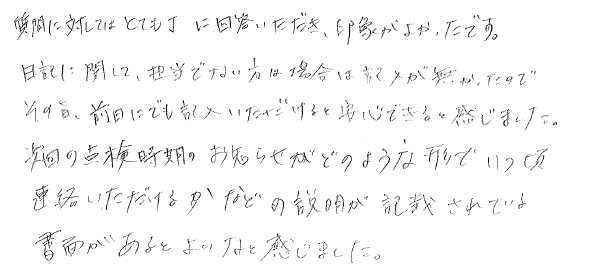 質問に対してはとても丁 に回答いただき、印象がよかったです。
日記に関して、担当でない方は場合は記入が無かったので
その旨、前日にでも記入いただけると安心できると感じました。
次回の点検時期のお知らせがどのような形でいつ頃
連絡いただけるかなどの説明が記載されている
書面があるとよいなと感じました。